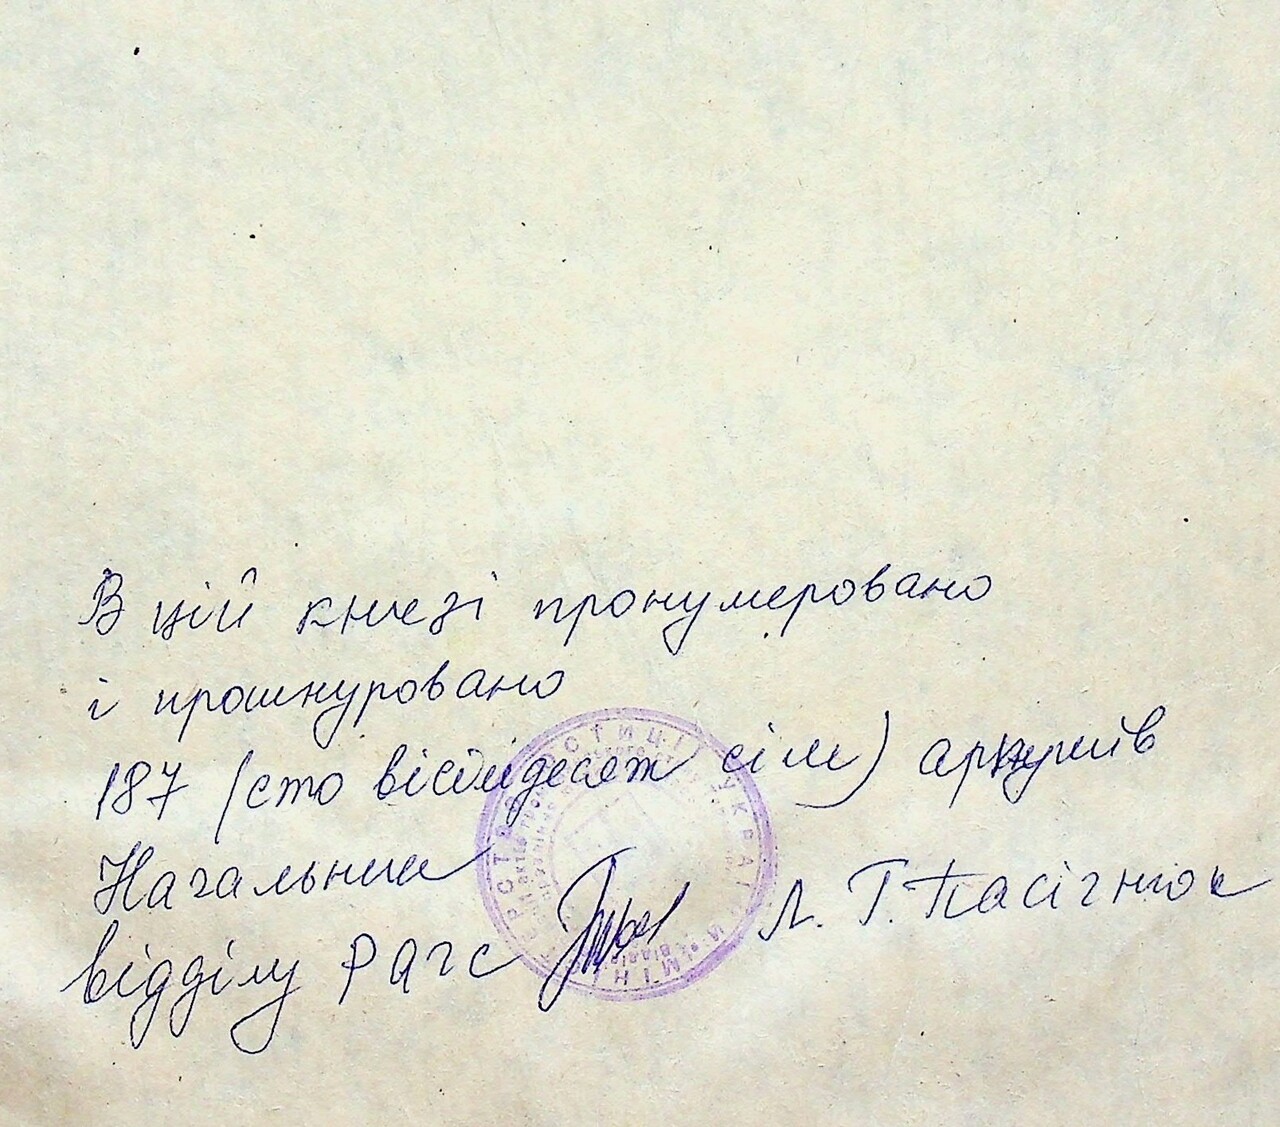 В цій книзі пронумеровано
і прошнуровано
187 (сто вісімдесят сім) аркушів
Начальник
відділу РАГС Л. Г. Пасічнюк
МІНІСТЕРСТВО ЮСТИЦІЇ УКРАЇНИ